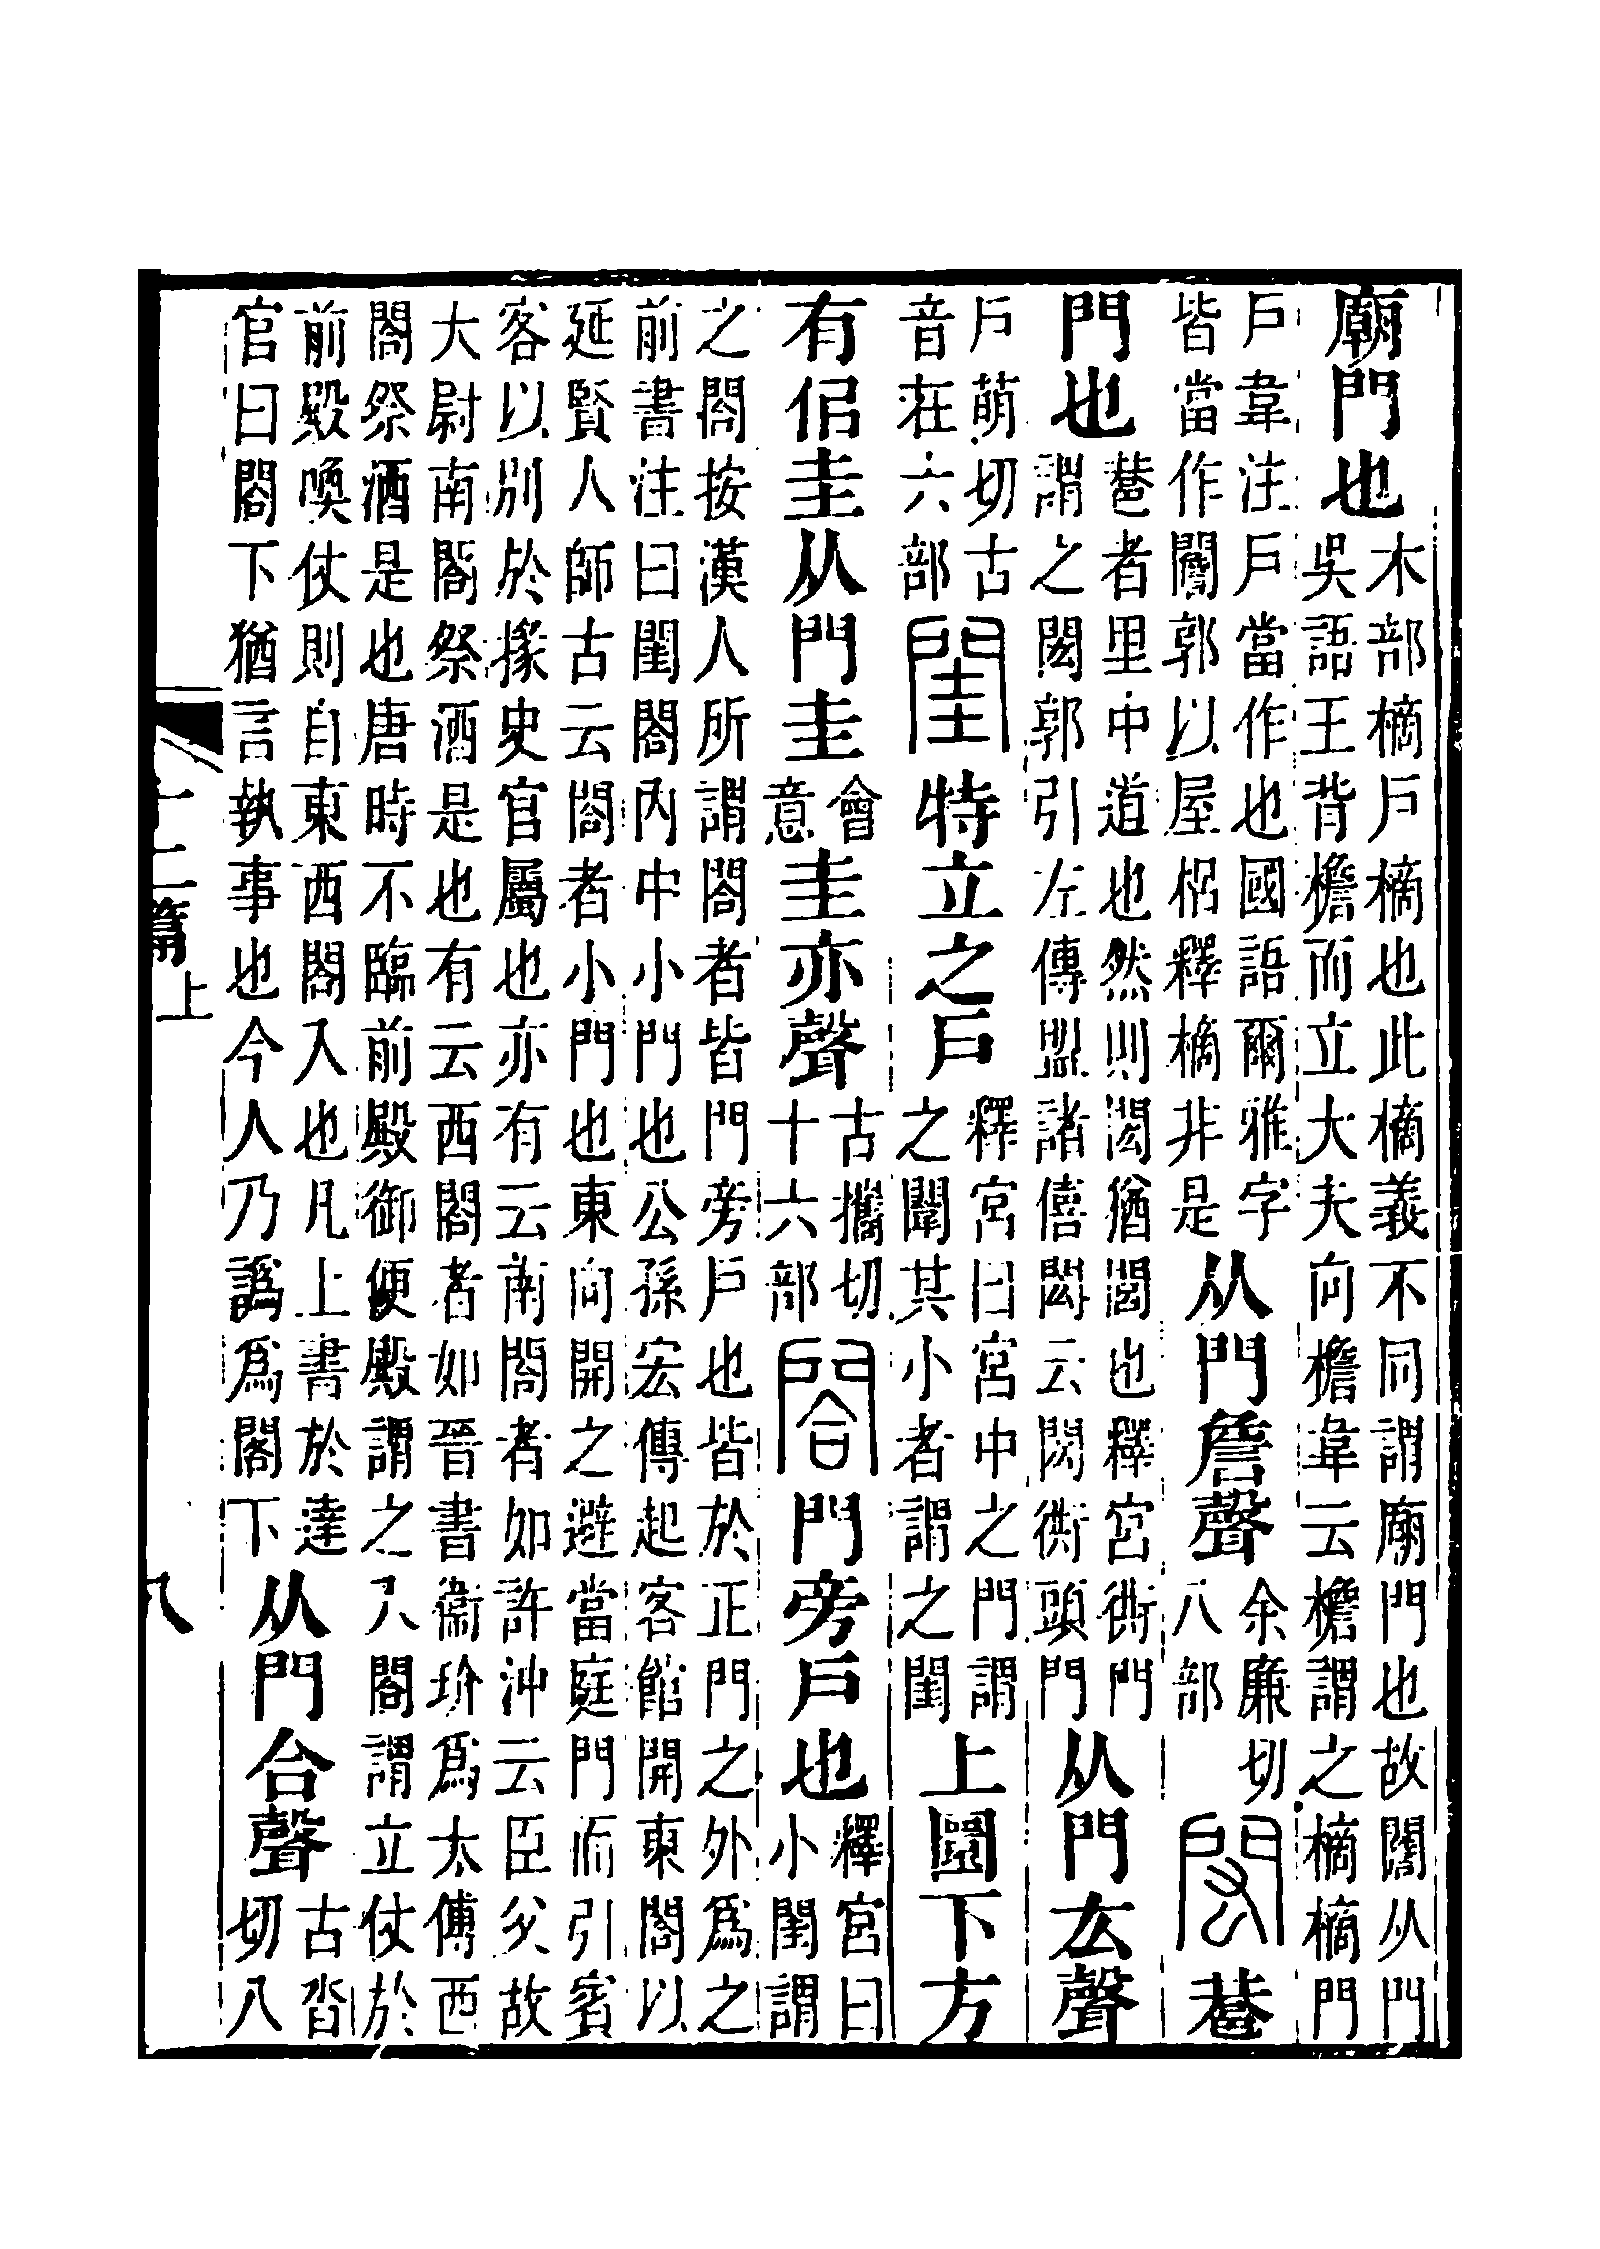 廟門也木部樀戶樀也此樀義不同謂廟門也故䦲从門吳語王背檐而立大夫向檐韋云檐謂之樀樀門
戶韋注戶當作也國語爾雅字皆當作䦲郭以屋梠釋樀非是从門詹聲余廉切八部閎巷
門也巷者里中道也然則閎猶閭也釋宮衖門謂之閎郭引左傳盟諸僖閎云閎衖頭門从門厷聲
戶萌切古音在六部閨特立之戶釋宮曰宮中之門謂之闈其小者謂之閨上圜下方
有佀圭从門圭會意圭亦聲古攜切十六部閤門旁戶也釋宮曰小閨謂
之閤按漢人所謂閤者皆門旁戶也皆於正門之外爲之前書注曰閨閤內中小門也公孫宏傳起客館開東閤以
延賢人師古云閤者小門也東向開之避當庭門而引賓客以別於掾史官屬也亦有云南閤者如許沖云臣父故
大尉南閤祭酒是也有云西閤者如晉書衞玠爲太傅西閤祭酒是也唐時不臨前殿御便殿謂之入閤謂立仗於
前殿喚仗則自東西閤入也凡上書於達官曰閤下猶言執事也今人乃譌爲閣下从門合聲古沓切八
十二篇上 八